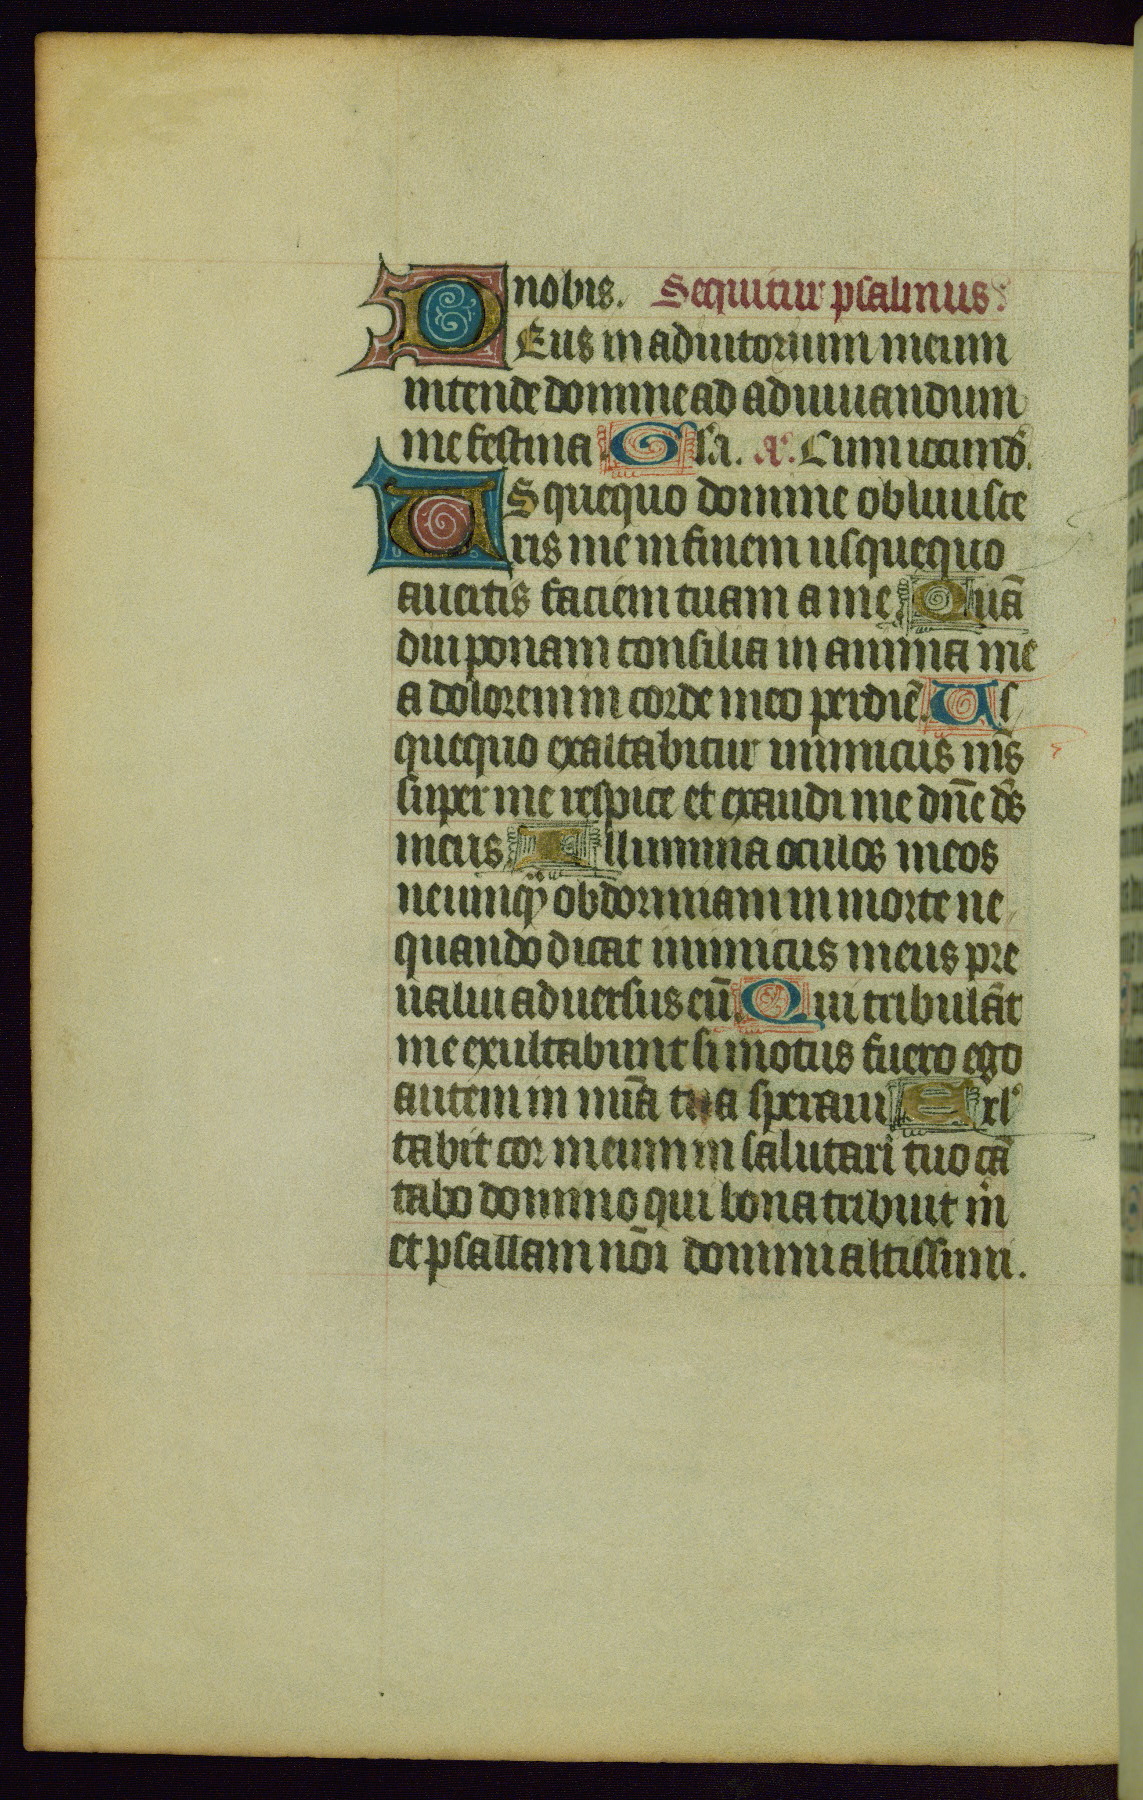 nobis. Sequitur psalmus
DEus in adiutorium meum
intende domine ad adiuuandum
me festina Glia. A. Cum iocund.
USquequo domine obliuisce
ris me in finem usquequo
auertis faciem tuam a me. Quā
diu ponam consilia in anima me
a dolorem in corde meo per diē. Us
quequo exaltabitur inimicus ms̄
super me respice et exaudi me dn̄e ds̄
meus Illumina oculos meos
ne umqȝ obdormiam in morte ne
quando dicat inimicus meus pre
ualui aduersus eū. Qui tribulāt
me exultabunt si motus fuero ego
autem in mīa tua speraui Exl
tabit cor meum in salutari tuo cā
tabo domino qui bona tribuit m̄
et psallam nōi domini altissimi.